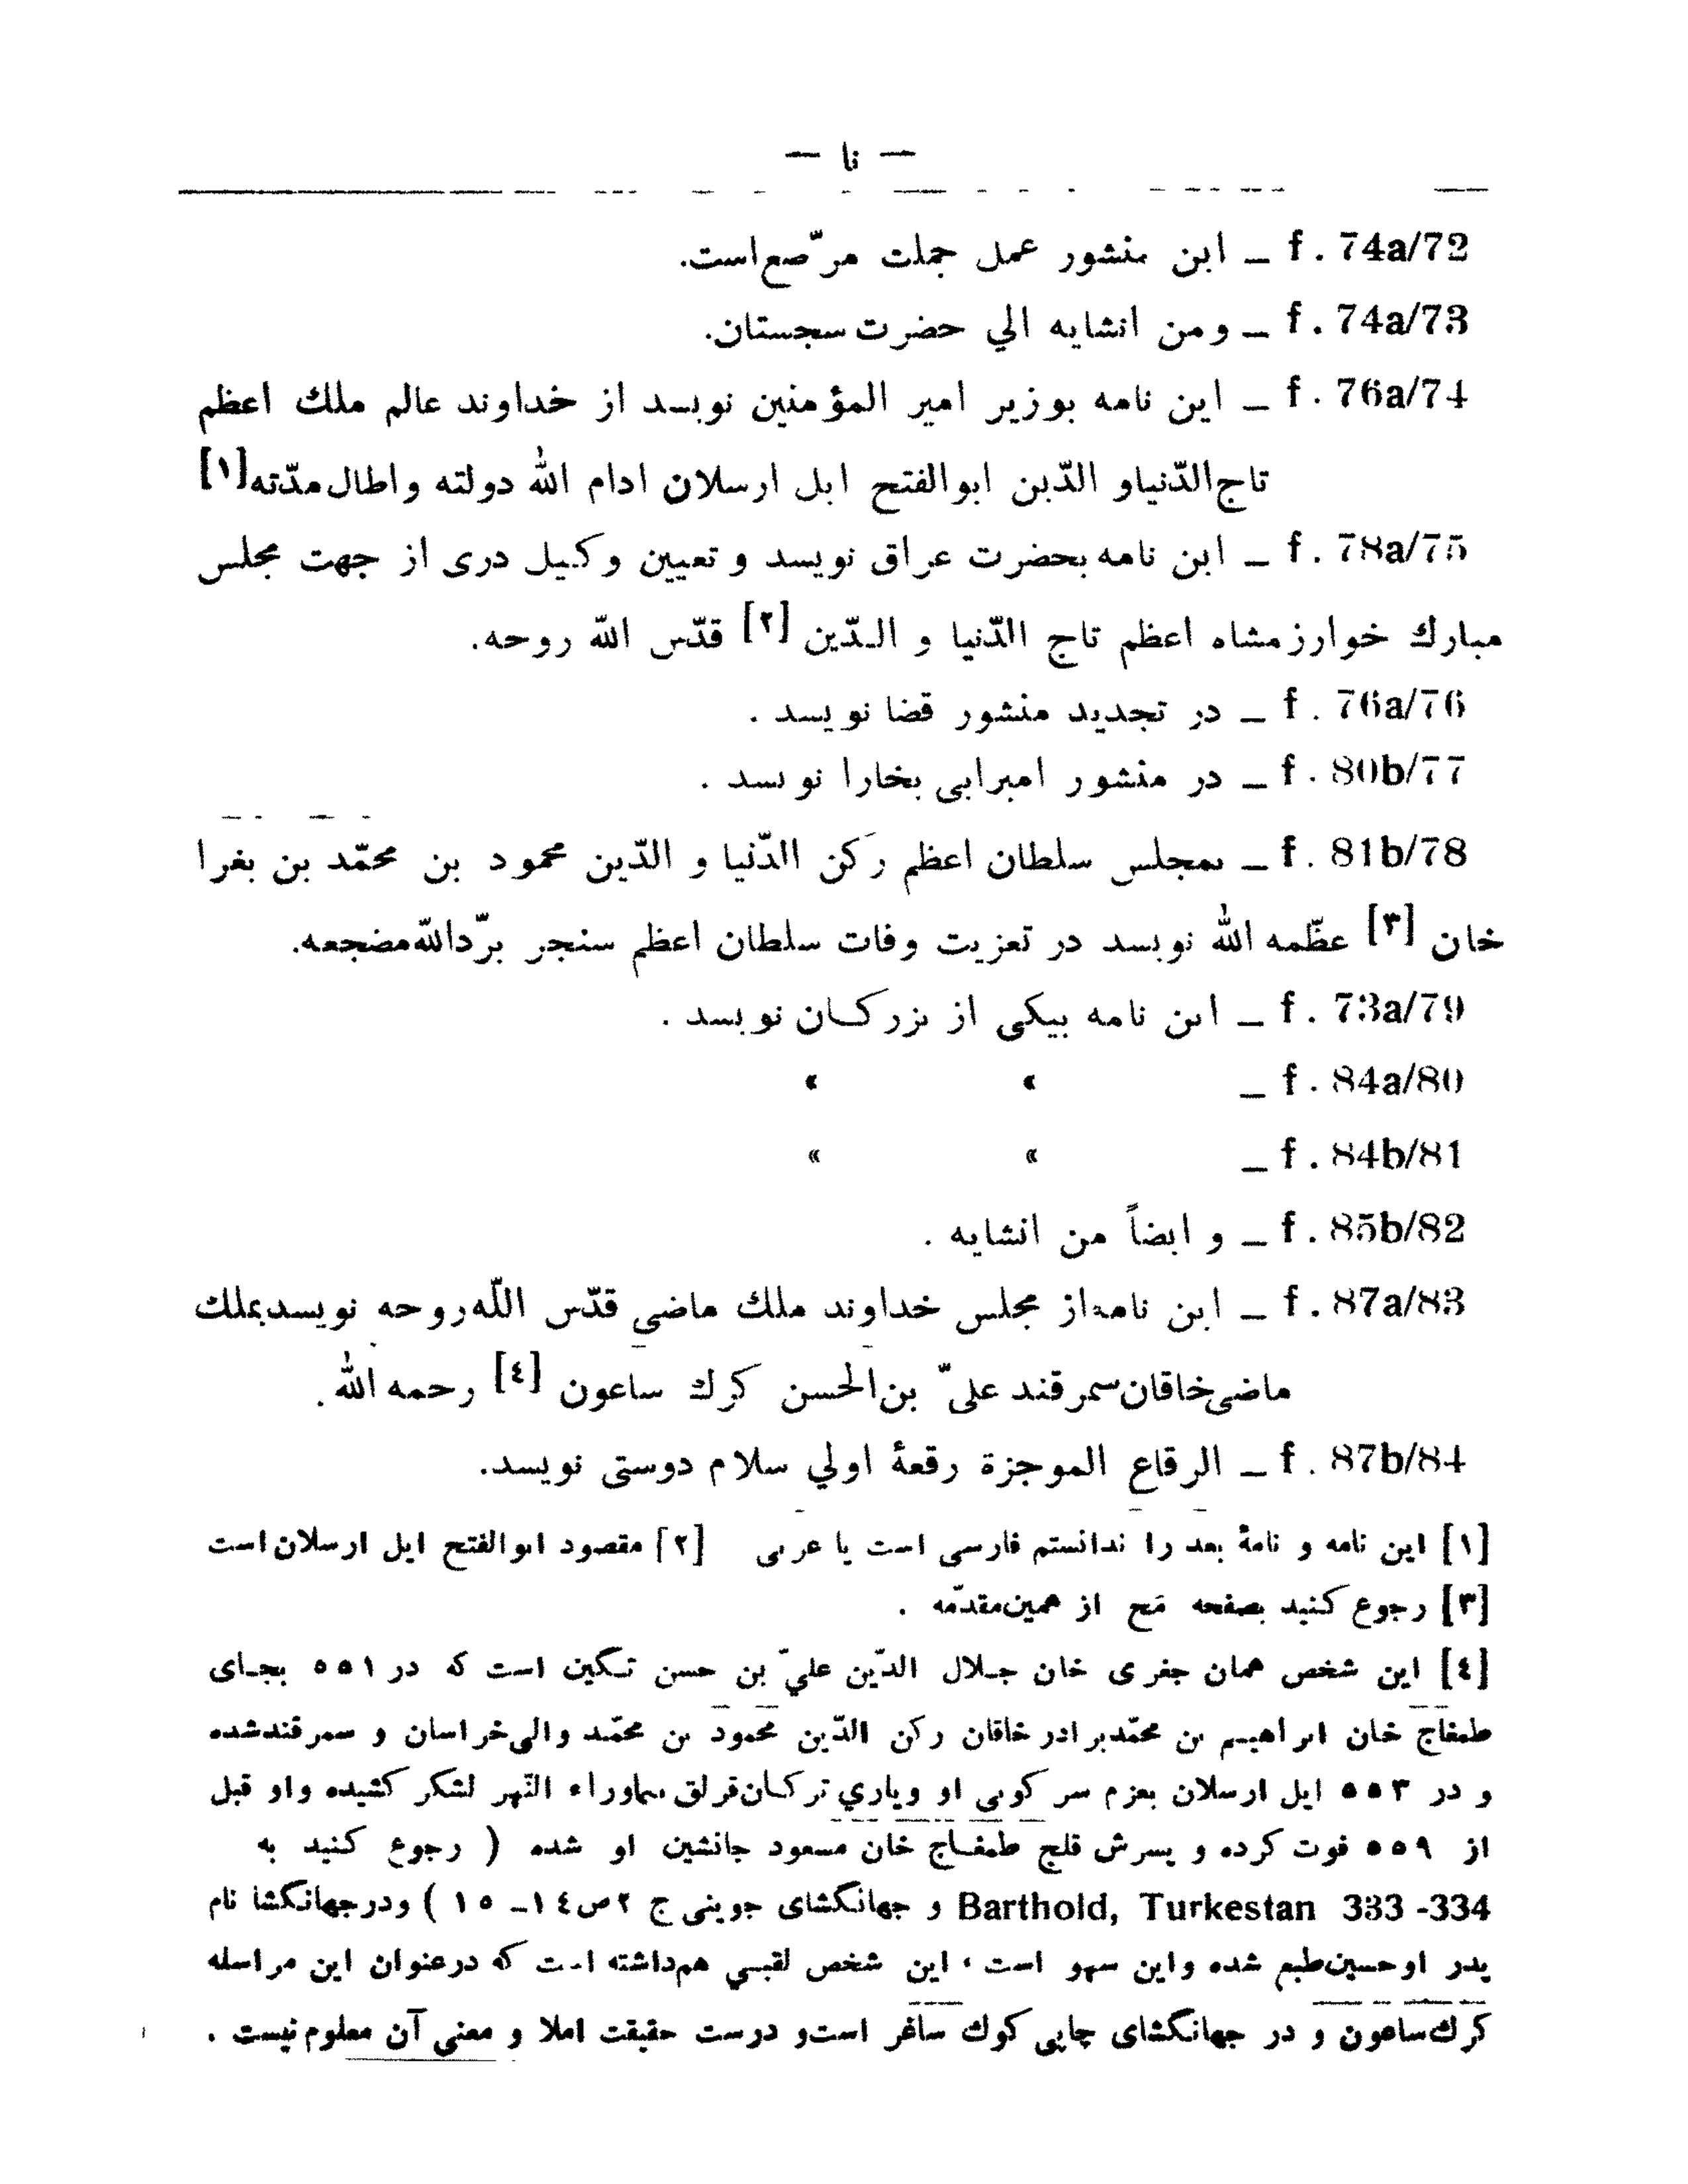 — نا —
f. 74a/72 _ این منشور عمل جملت مرّصع است.
f. 74a/73 _ ومن انشایه الي حضرت سجستان.
f. 76a/74 _ این نامه بوزیر امیر المؤمنین نویسد از خداوند عالم ملك اعظم
تاج الدّنیاو الدّین ابوالفتح ایل ارسلان ادام اللّه دولته واطال مدّته[١]
f. 78a/75 _ این نامه بحضرت عراق نویسد و تعیین وکیل دری از جهت مجلس
مبارك خوارزمشاه اعظم تاج الدّنیا و الدّین [٢] قدّس اللّه روحه.
f. 76a/76 _ در تجدید منشور قضا نویسد .
f. 80b/77 _ در منشور امیرابی بخارا نویسد .
f. 81b/78 _ بمجلس سلطان اعظم رکن الدّنیا و الدّین محمود بن محمّد بن بغرا
خان [٣] عظّمه اللّه نویسد در تعزیت وفات سلطان اعظم سنجر برّداللّه مضجعه.
f. 73a/79 _ این نامه بیکی از بزرکان نویسد .
f. 84a/80 _ « «
f. 84b/81 _ « «
f. 85b/82 _ و ایضاً من انشایه .
f. 87a/83 _ این نامه از مجلس خداوند ملك ماضی قدّس اللّه روحه نویسد بملك
ماضی خاقان سمرقند علیّ بن الحسن کرك ساعون [٤] رحمه اللّه .
f. 87b/84 _ الرقاع الموجزة رقعۀ اولي سلام دوستی نویسد.
[١] این نامه و نامۀ بعد را ندانستم فارسی است یا عربی [٢] مقصود ابوالفتح ایل ارسلان است
[٣] رجوع کنید بصفحه مح از همین مقدّمه .
[٤] این شخص همان جغری خان جلال الدّین عليّ بن حسن تکین است که در ٥٥١ بجای
طمغاج خان ابراهیم بن محمّد برادر خاقان رکن الدّین محمود بن محمّد والی خراسان و سمرقند شده
و در ٥٥٣ ایل ارسلان بعزم سرکوبی او ویاري ترکان قرلق بماوراء النّهر لشکر کشیده واو قبل
از ٥٥٩ فوت کرده و پسرش قلج طمغاج خان مسعود جانشین او شده ( رجوع کنید به
Barthold, Turkestan 333-334 و جهانگشای جوینی ج ٢ ص ١٤_ ١٥ ) ودرجهانگشا نام
پدر اوحسین طبع شده واین سهو است ، این شخص لقبي هم داشته است که درعنوان این مراسله
کرك ساعون و در جهانگشای چاپی کوك ساغر است و درست حقیقت املا و معنی آن معلوم نیست .